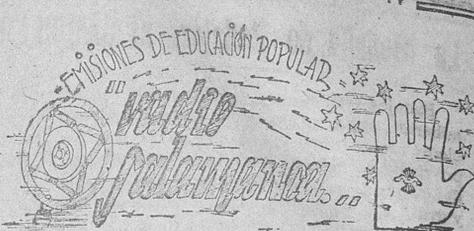 "EMISIONES DE EDUCACIÓN POPULAR"
"radio
Salamanca..."